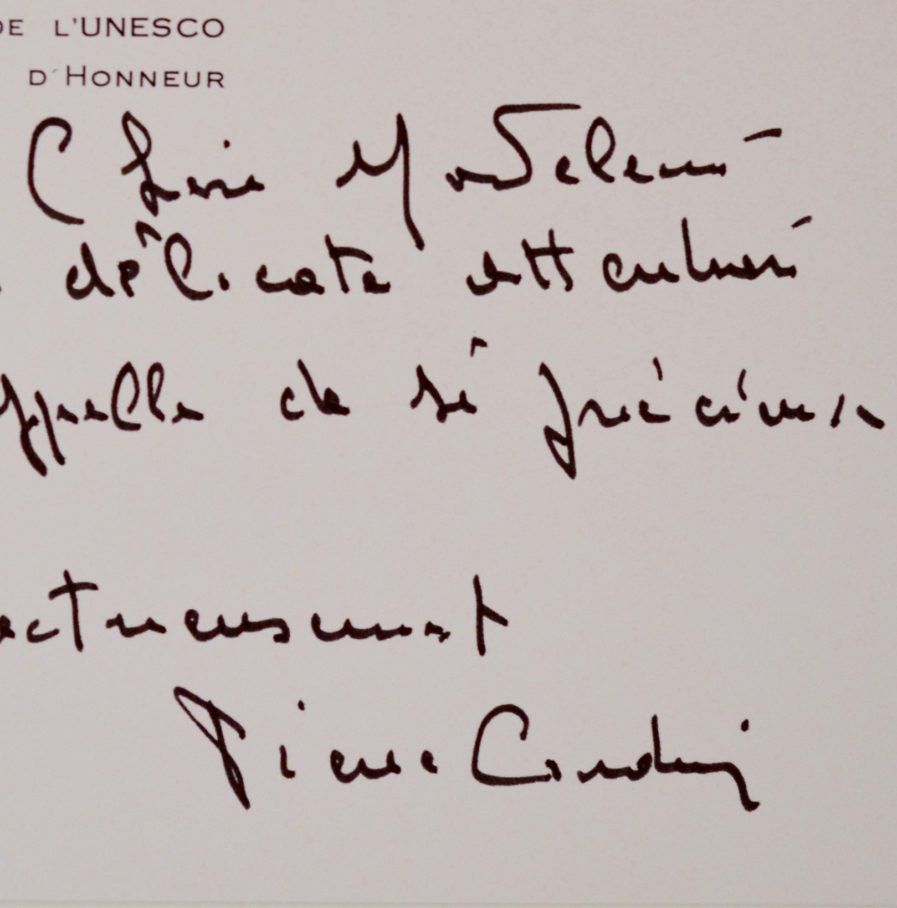 DE L'UNESCO
D'HONNEUR
Chère
délicate attention
appelle de si précieux
ectueusement
Pierre Cardin